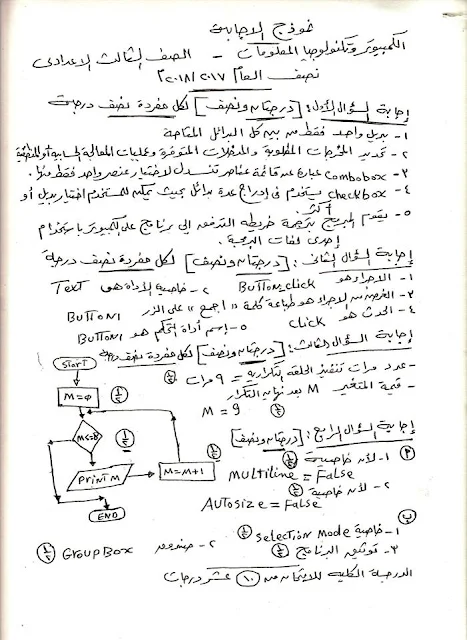 نموذج الاجابة
الكمبيوتر وتكنولوجيا المعلومات - الصف الثالث الاعدادى
نصف العام ٢٠١٧ / ٢٠١٨
إجابة السؤال الأول: [درجتان ونصف] لكل مفردة نصف درجة
١- بديل واحد فقط من بين كل البدائل المتاحة
٢- تحديد المخرجات المطلوبة والمدخلات المتوفرة وعمليات المعالجة الحسابية أو المنطقية
٣- combobox عبارة عن قائمة عناصر تنسدل لاختيار عنصر واحد فقط منها.
٤- checkbox يستخدم فى إدراج عدة بدائل بحيث يمكن للمستخدم اختيار بديل أو أكثر
٥- يقوم المبرمج بترجمة خريطة التدفق إلى برنامج على الكمبيوتر باستخدام
إحدى لغات البرمجة.
إجابة السؤال الثانى: [درجتان ونصف] لكل مفردة نصف درجة
١- الاجراء هو Button1_click ٢- خاصية الأداة هى Text
٣- الغرض من الاجراء هو طباعة كلمة "اجمع" على الزر Button1
٤- الحدث هو click ٥- إسم أداة التحكم هو Button1
إجابة السؤال الثالث: [درجتان ونصف] لكل مفردة نصف درجة
- عدد مرات تنفيذ الحلقة التكرارية = 9 مرات ½
- قيمة المتغير M بعد نهاية التكرار
M = 9 ½
Start
M=φ ½
M<=8 ½
Print M
M=M+1 ½
END
إجابة السؤال الرابع: [درجتان ونصف]
أ ١- لأن خاصية ½
Multiline = False
٢- لأن خاصية ½
Autosize = False
ب
١- خاصية selection Mode ½ ٢- صندوق GroupBox ½
٣- توثيق البرنامج ½
الدرجة الكلية للامتحان من ١٠ عشر درجات